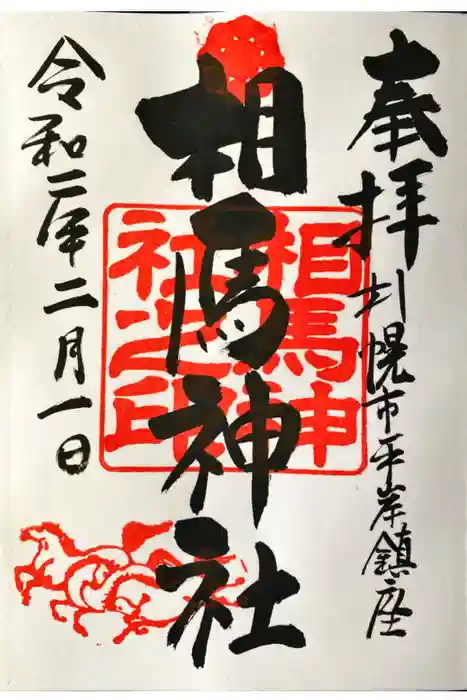 奉拝
札幌市平岸鎮座
相馬神社
相馬神
社之印
令和二年二月一日